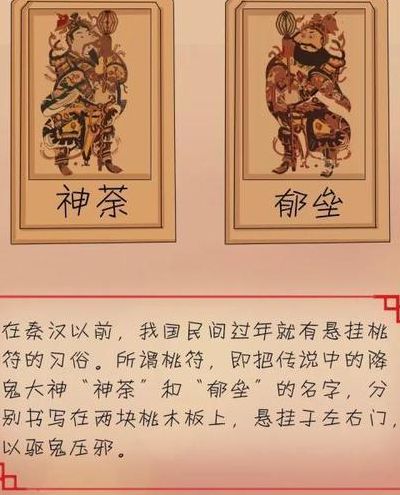 神荼
郁垒
在秦汉以前，我国民间过年就有悬挂桃
符的习俗。所谓桃符，即把传说中的降
鬼大神“神荼”和“郁垒”的名字，分
别书写在两块桃木板上，悬挂于左右门，
以驱鬼压邪。